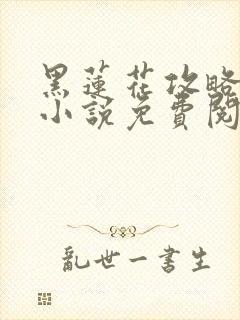 黑蓮花攻略
小說免費閱
亂世一書生